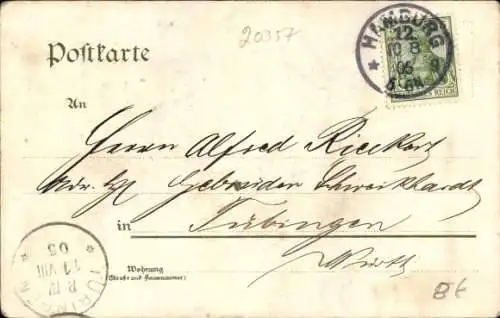 20357
Postkarte
HAMBURG
12
10 8
05
5-6N.
REICH
An
Herrn Alfred Rieckert
Adr. Gebrüder Schweikhardt
in Tübingen
Württ
Wohnung
(Straße und Hausnummer)
TÜBINGEN
11 VIII
05